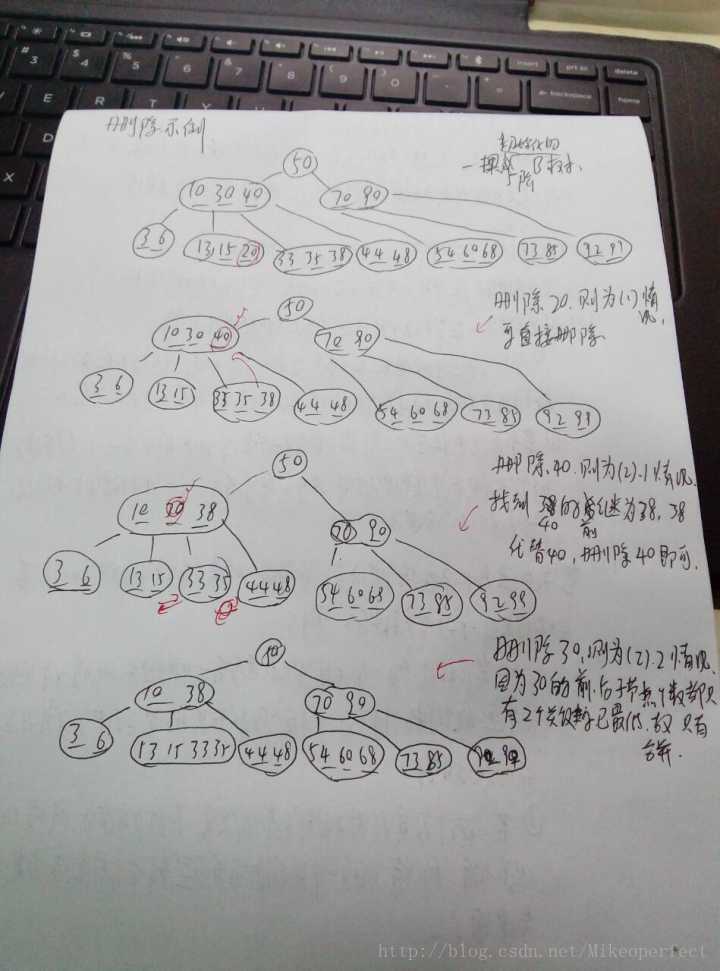 删除示例
初始化的
一棵5阶B树
50
10 30 40
70 90
3 6
13 15 20
33 35 38
44 48
54 60 68
73 85
92 99
删除20.则为(1)情况,
可直接删除
50
10 30 40
70 90
3 6
13 15
33 35 38
44 48
54 60 68
73 85
92 99
删除40.则为(2).1情况
找到40的前继为38,38
代替40,删除40即可.
50
10 30 38
70 90
3 6
13 15
33 35
44 48
54 60 68
73 85
92 99
删除30,则为(2).2情况
因为30的前.后子节点个数都只
有2个关键字已最低.故只有
合并.
50
10 38
70 90
3 6
13 15 33 35
44 48
54 60 68
73 85
92 99
http://blog.csdn.net/Mikeoperfect